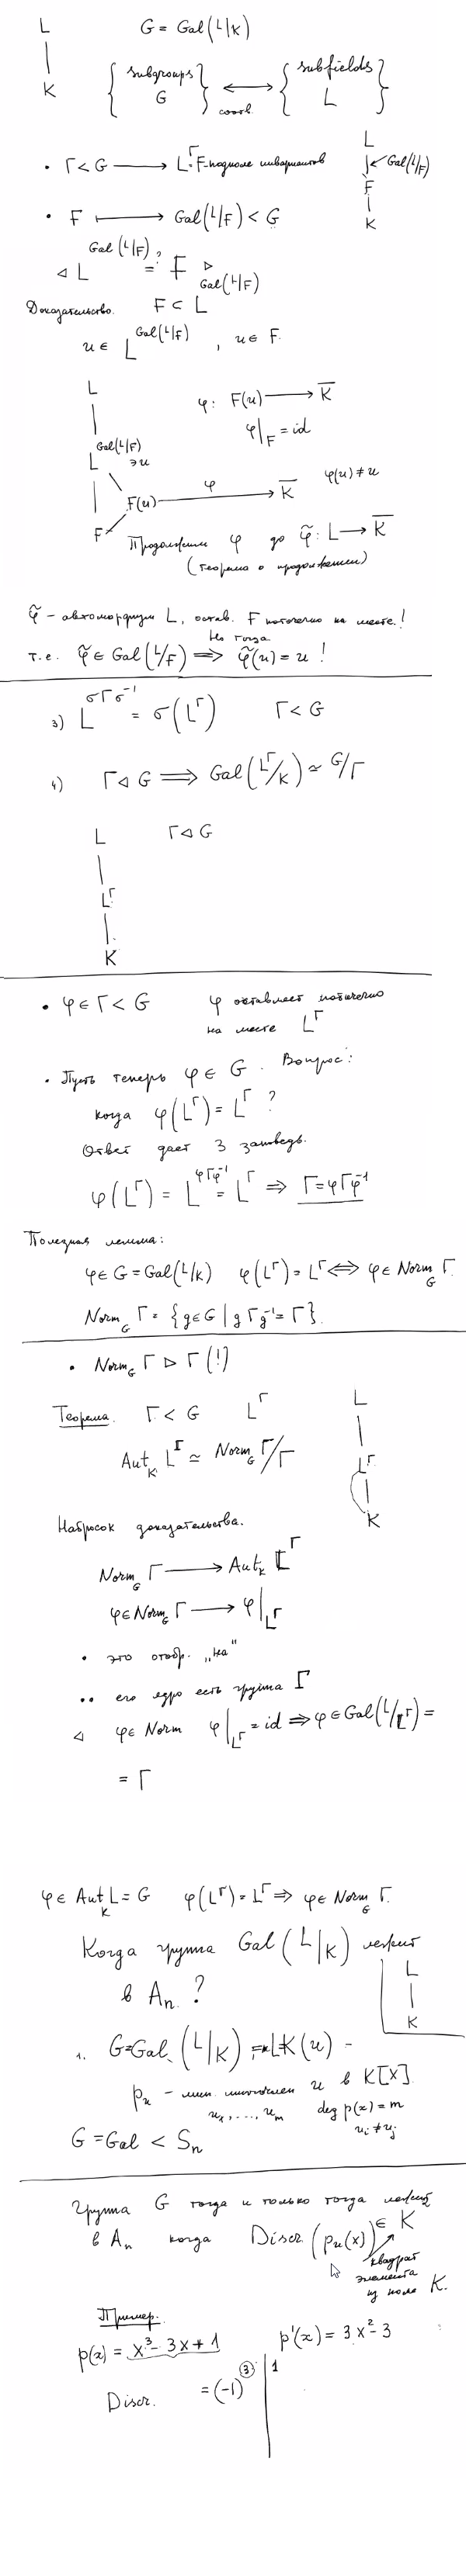 L
G = Gal(L/K)
K
{ subgroups G } ⟷ { subfields L }
соотв.
• Γ < G ⟶ L^Γ = F - подполе инвариантов
L
Gal(L/F)
F
K
• F ⟼ Gal(L/F) < G
⊲ L^Gal(L/F) =? F ⊳
Gal(L/F)
Доказательство. F ⊂ L
u ∈ L^Gal(L/F), u ∈ F.
L
φ: F(u) ⟶ K̄
φ|_F = id
L^Gal(L/F) ∋ u
F(u) ⟶ K̄
φ
φ(u) ≠ u
F
Продолжим φ до φ̃: L ⟶ K̄
(теорема о продолжении)
φ̃ - автоморфизм L, остав. F поточечно на месте!
Но тогда
т.е. φ̃ ∈ Gal(L/F) ⟹ φ̃(u) = u !
3) L^σΓσ⁻¹ = σ(L^Γ) Γ < G
4) Γ ⊲ G ⟹ Gal(L^Γ/K) ≃ G/Γ
L Γ ⊲ G
L^Γ
K
• φ ∈ Γ < G φ оставляет поточечно
на месте L^Γ
• Пусть теперь φ ∈ G. Вопрос:
когда φ(L^Γ) = L^Γ ?
Ответ дает 3 заповедь.
φ(L^Γ) = L^φΓφ⁻¹ = L^Γ ⟹ Γ = φΓφ⁻¹
Полезная лемма:
φ ∈ G = Gal(L/K) φ(L^Γ) = L^Γ ⟺ φ ∈ Norm_G Γ.
Norm_G Γ = {g ∈ G | gΓg⁻¹ = Γ}.
• Norm_G Γ ⊳ Γ (!)
Теорема. Γ < G L^Γ
Aut_K L^Γ ≃ Norm_G Γ/Γ
L
L^Γ
K
Набросок доказательства.
Norm_G Γ ⟶ Aut_K L^Γ
φ ∈ Norm_G Γ ⟶ φ|_L^Γ
• это отобр. „на"
•• его ядро есть группа Γ
⊲ φ ∈ Norm φ|_L^Γ = id ⟹ φ ∈ Gal(L/L^Γ) =
= Γ
φ ∈ Aut_K L = G φ(L^Γ) = L^Γ ⟹ φ ∈ Norm_G Γ.
Когда группа Gal(L/K) лежит
в A_n ?
L
K
1. G = Gal(L/K) L = K(u) -
p_u - мин. многочлен u в K[X]
u_1, ..., u_m deg p(x) = m
u_i ≠ u_j
G = Gal < S_n
Группа G тогда и только тогда лежит
в A_n когда Discr(p_u(x)) ∈ K
квадрат
элемента
из поля K.
Пример.
p(x) = x³ - 3x + 1 p'(x) = 3x² - 3
Discr. = (-1)^③ | 1